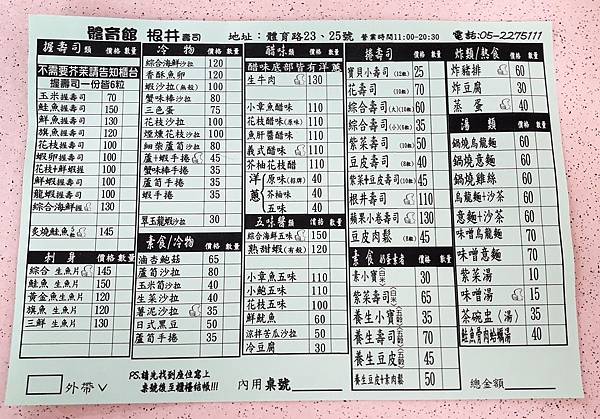 體育館 根井壽司 地址：體育路23、25號 營業時間11:00-20:30 電話:05-2275111
握壽司類 價格 數量
不需要芥茉請告知櫃台
握壽司一份皆6粒
玉米握壽司 70
鮭魚握壽司 150
鮮蝦握壽司 130
旗魚握壽司 120
花枝握壽司 130
蝦卵握壽司 130
花枝+鮮蝦握 130
鮮蝦握壽司 130
龍蝦握壽司 130
綜合海鮮握 130
炙燒鮭魚 145
刺身 價格 數量
綜合生魚片 145
鮭魚生魚片 150
黃金魚生魚片 120
旗魚生魚片 120
三鮮生魚片 130
冷物 價格 數量
綜合海鮮沙拉 120
香酥魚卵 120
蝦沙拉(無殼) 100
蟹味棒沙拉 80
三色蛋 75
花枝沙拉 100
煙燻花枝沙拉 100
細柴蘆筍沙拉 80
蘆+蝦手捲 45
蟹味棒手捲 35
蘆筍手捲 35
蝦手捲 35
翠玉龍蝦沙拉 30
素食/冷物 價格 數量
滷杏鮑菇 65
蘆筍沙拉 80
玉米筍沙拉 40
生菜沙拉 40
薯泥沙拉 35
日式黑豆 50
蘆筍手捲 35
醋味類 價格 數量
醋味底部皆有洋蔥
生牛肉 130
小章魚醋味 110
花枝醋味(原味) 110
魚肝醬醋味 110
義式醋味 110
芥柚花枝醋 110
洋蔥 原味(招牌) 40
芥柚味 40
五味 40
五味醬類 價格 數量
綜合海鮮五味 150
熟甜蝦(有殼) 120
小章魚五味 110
小鮑五味 110
花枝五味 100
鮮魷魚 60
涼拌苦瓜沙拉 50
冷豆腐 30
捲壽司 價格 數量
寶貝小壽司(12粒) 25
花壽司(10粒) 70
綜合壽司(大)(10粒) 60
綜合壽司(小)(6粒) 35
紫菜壽司(10粒) 50
豆皮壽司(5粒) 40
紫菜+豆皮壽司(10粒) 45
根井壽司 110
蘋果小卷壽司 110
豆皮肉鬆 40
素食 奶蛋素者 價格 數量
素小寶(白米) 30
紫菜壽司(白米) 65
養生小寶(五穀) 35
養生壽司(五穀) 70
養生豆皮(五穀) 45
養生豆皮+素肉鬆 50
炸類/熱食 價格 數量
炸豬排 60
炸豆腐 30
蒸蛋 40
湯類 價格 數量
鍋燒烏龍麵 60
鍋燒意麵 60
鍋燒雞絲 60
烏龍麵+沙茶 60
意麵+沙茶 60
味噌烏龍麵 60
味噌意麵 60
紫菜湯 10
味噌湯 15
茶碗蒸(湯) 35
鮭魚骨肉蛤蠣湯 40
外帶∨
PS.請先找到座位寫上
桌號後至櫃檯結帳!!!
內用 桌號
總金額